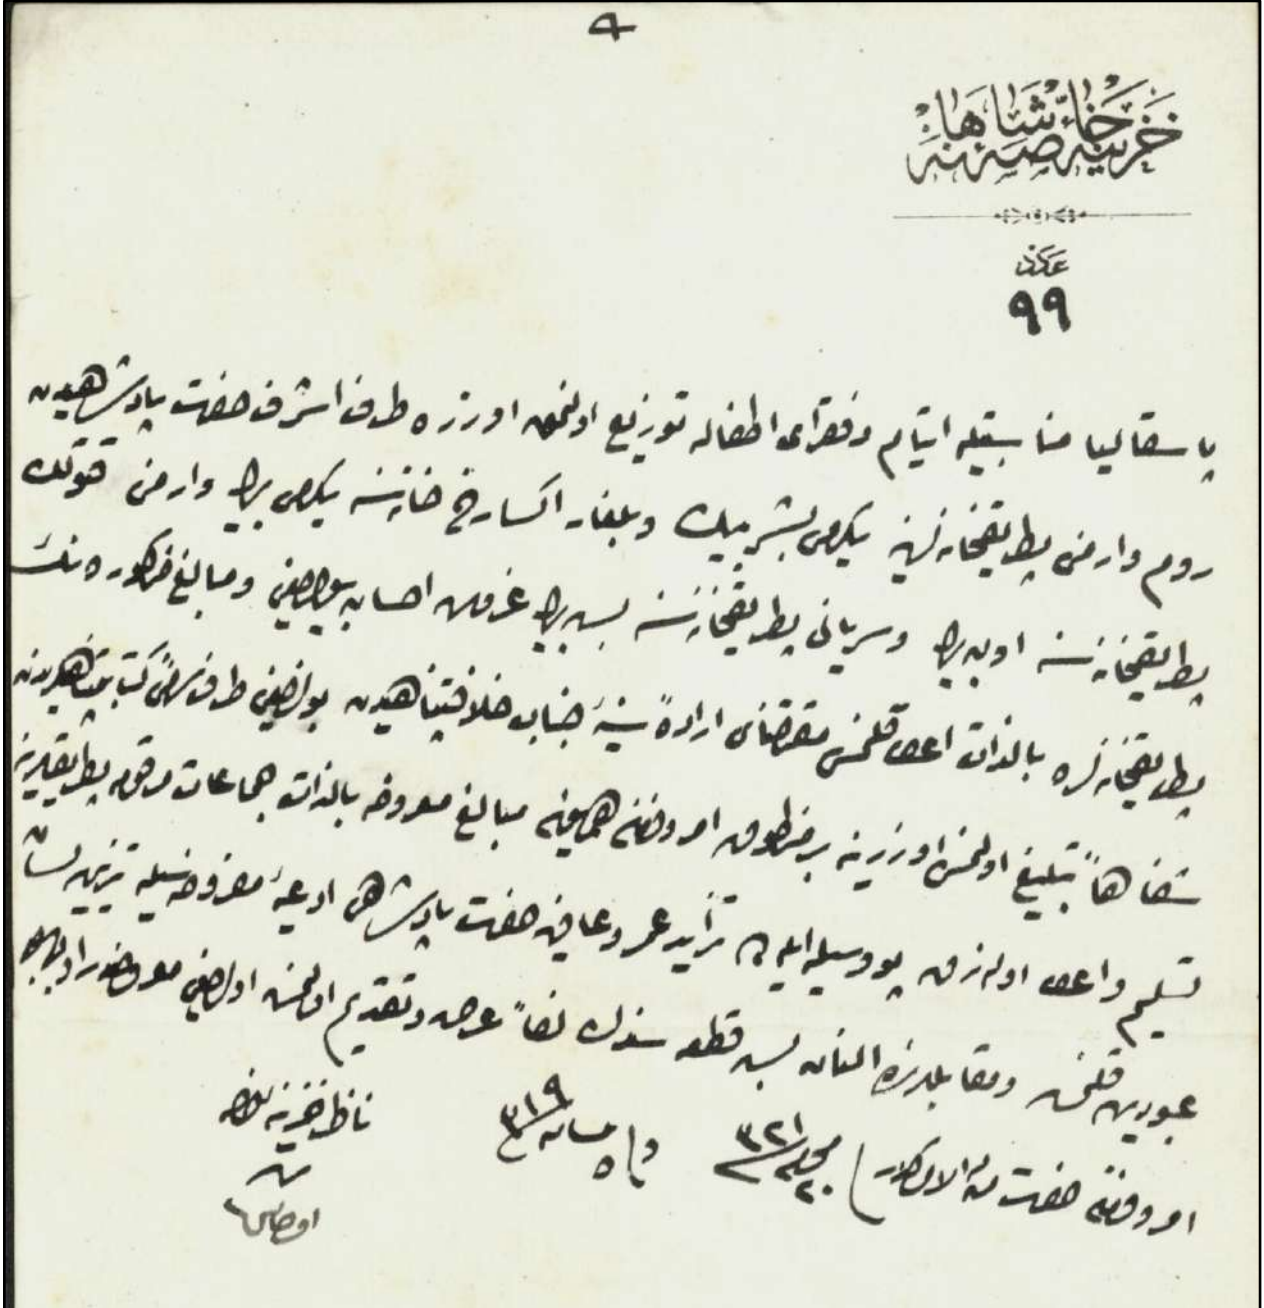 ٩
خزينهٔ خاصهٔ شاهانه
عدد
٩٩
پاسقاليا مناسبتيله ايتام و فقراى اطفاله توزيع اولنمق اوزره طرف اشرف حضرت پادشاهيدن
روم وارمنى بطريقخانه لرينه يكرمى بشر بيك و بلغار اكسارخخانه سنه يكرمى بيك وارمنى قتوليك
بطريقخانه سنه اون بيك و سريانى بطريقخانه سنه بش بيك غروش احسان بيورلديغى و مبالغ مذكوره نك
بطريقخانه لره بالذات اعطا قلنمسى مقتضاى ارادهٔ سنيهٔ جناب خلافتپناهيدن بولنديغى طرف
شفاهاً تبليغ اولنمسى اوزرينه بر منطوق امر و فرمان همايون مبالغ معروضه بالذات جماعات مرقومه بطريقلرينه
تسليم و اعطا اولنه رق بو وسيله ايله ده تزايد عمر و عافيت حضرت پادشاهى ادعيهٔ مفروضه سيله تزيين لسان
عبوديت قلنمش و مقابلنده النان بش قطعه سندك لفاً عرض و تقديم اولنمش اولديغى معروضدر اولبابده
امر و فرمان حضرت من له الامركدر فى ٢٠ محرم ٣٢١ و فى ٥ نيسان ٣١٩
ناظر خزينهٔ خاصه
اوهانس